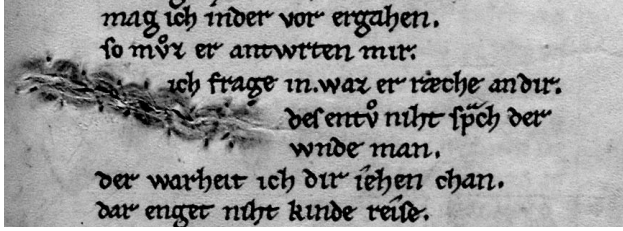 mag ich inder vor ergahen.
so můz er antwrten mir.
ich frage in. waz er ræche an dir.
des entů niht sp̃ch der
wnde man.
der warheit ich dir iehen chan.
dar enget niht kinde reise.